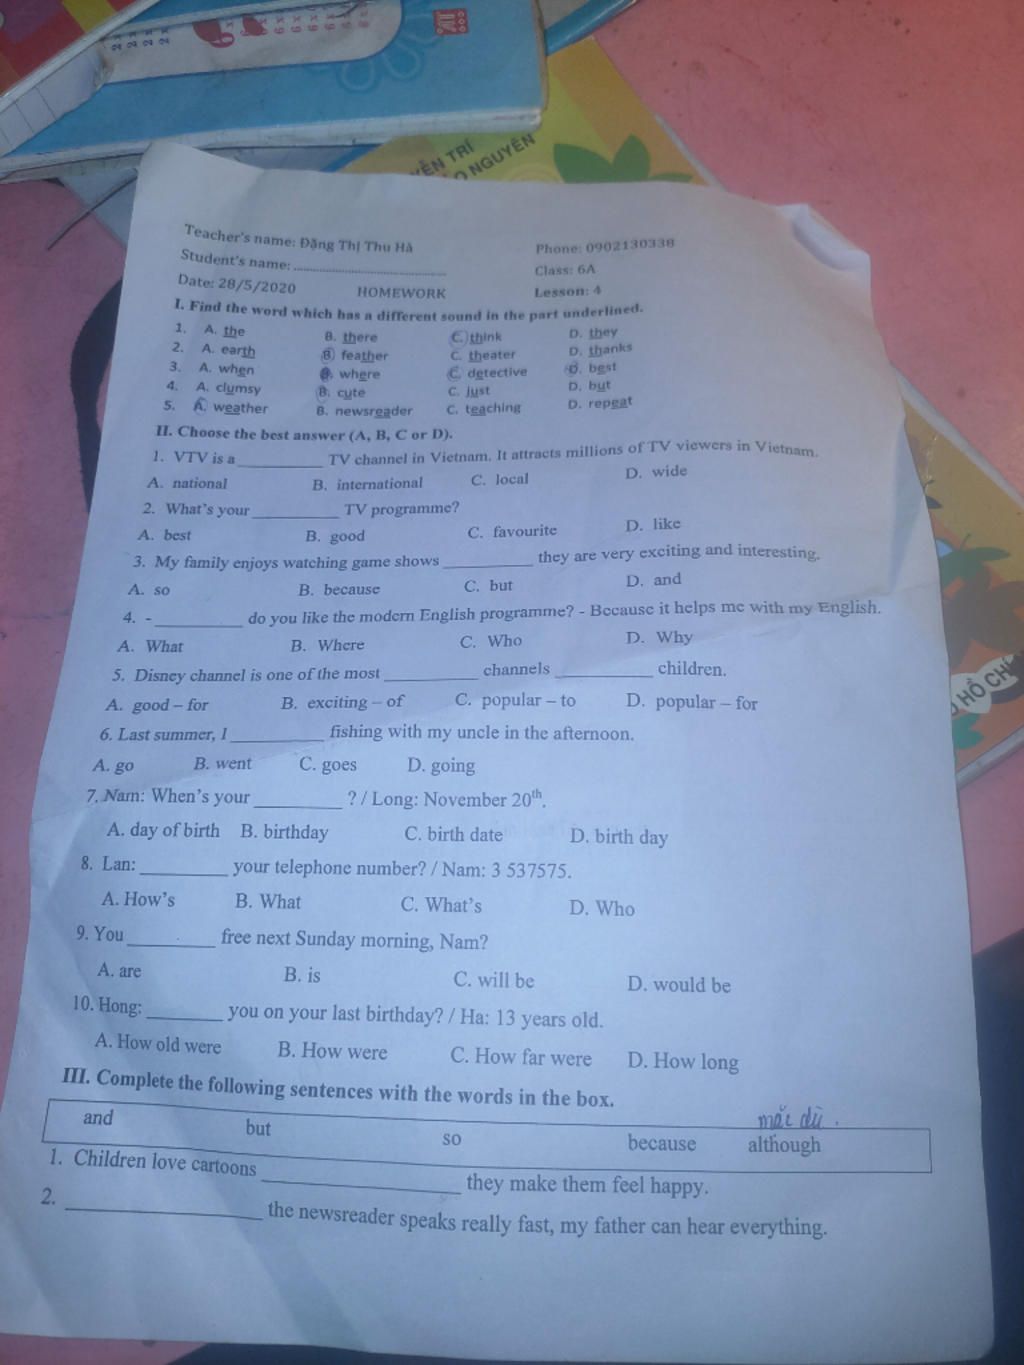 ỀN TRÍ
O NGUYÊN
Teacher's name: Đặng Thị Thu Hà Phone: 0902130338
Student's name: Class: 6A
Date: 28/5/2020 HOMEWORK Lesson: 4
I. Find the word which has a different sound in the part underlined.
1. A. the B. there C. think D. they
2. A. earth B. feather C. theater D. thanks
3. A. when B. where C. detective D. best
4. A. clumsy B. cute C. just D. but
5. A. weather B. newsreader C. teaching D. repeat
II. Choose the best answer (A, B, C or D).
1. VTV is a __________ TV channel in Vietnam. It attracts millions of TV viewers in Vietnam.
A. national B. international C. local D. wide
2. What's your __________ TV programme?
A. best B. good C. favourite D. like
3. My family enjoys watching game shows __________ they are very exciting and interesting.
A. so B. because C. but D. and
4. - __________ do you like the modern English programme? - Because it helps me with my English.
A. What B. Where C. Who D. Why
5. Disney channel is one of the most __________ channels __________ children.
A. good – for B. exciting – of C. popular – to D. popular – for
6. Last summer, I __________ fishing with my uncle in the afternoon.
A. go B. went C. goes D. going
7. Nam: When's your __________ ? / Long: November 20th.
A. day of birth B. birthday C. birth date D. birth day
8. Lan: __________ your telephone number? / Nam: 3 537575.
A. How's B. What C. What's D. Who
9. You __________ free next Sunday morning, Nam?
A. are B. is C. will be D. would be
10. Hong: __________ you on your last birthday? / Ha: 13 years old.
A. How old were B. How were C. How far were D. How long
III. Complete the following sentences with the words in the box.
mặc dù.
and but so because although
1. Children love cartoons __________ they make them feel happy.
2. __________ the newsreader speaks really fast, my father can hear everything.
HỒ CHÍ